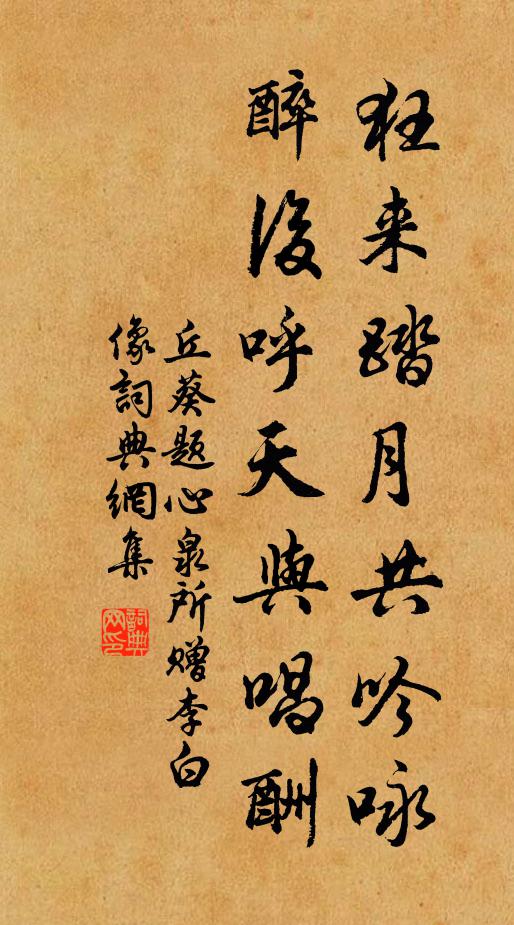 狂来踏月共吟咏
醉后呼天與唱酬
丘葵题心泉所赠李白
像詞典網集
詞典
网印